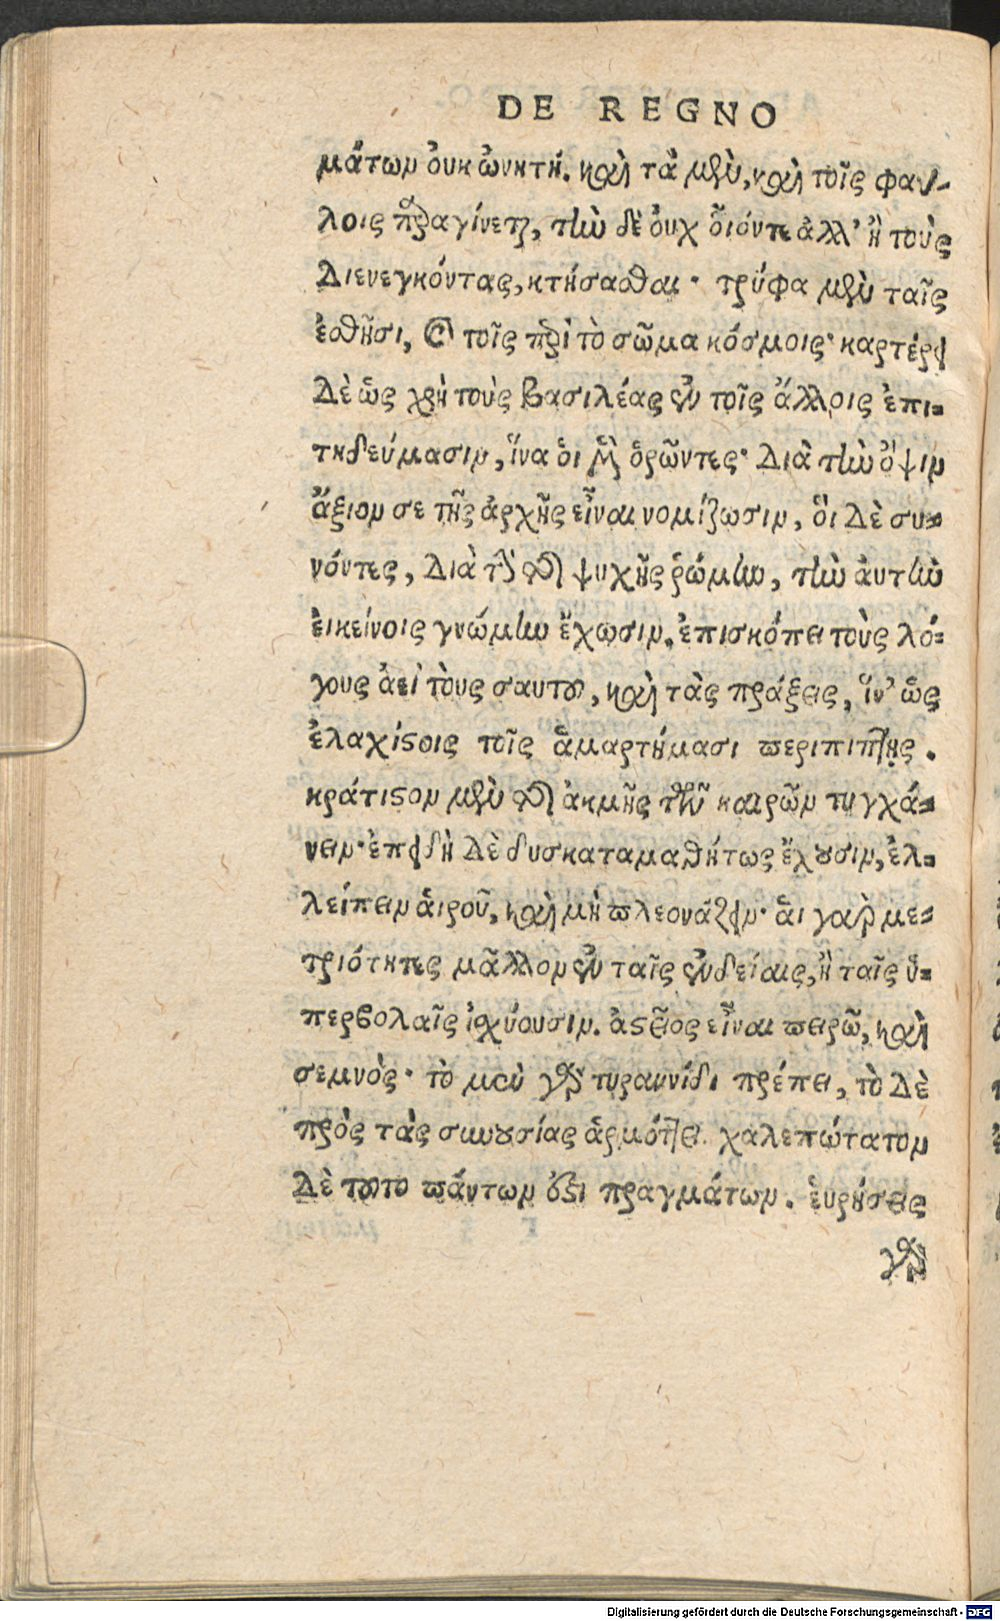 DE REGNO
μάτων ὀυκ ὠνητή. καὶ τὰ μὲν, καὶ τοῖς φαύ-
λοις παραγίνεται, τὴν δὲ ὀυχ ὁιόντε ἀλλ’ ἢ τοὺς
διενεγκόντας, κτήσασθαι· τρύφα μὲν ταῖς
ἐσθῆσι, καὶ τοῖς περὶ τὸ σῶμα κόσμοις· καρτέρει
δὲ ὡς χρὴ τοὺς βασιλέας ἐν τοῖς ἄλλοις ἐπι-
τηδεύμασιν, ἵνα ὁι μὲν ὁρῶντες· διὰ τὴν ὄψιν
ἄξιον σε τῆς ἀρχῆς εἶναι νομίζωσιν, ὅι δὲ συ-
νόντες, διὰ τὴν τῆς ψυχῆς ῥώμην, τὴν ἀυτὴν
ἐκείνοις γνώμην ἔχωσιν. ἐπισκόπει τοὺς λό-
γους ἀεὶ τοὺς σαυτοῦ, καὶ τὰς πράξεις, ἵν’ ὡς
ἐλαχίστοις τοῖς ἁμαρτήμασι περιπίπτῃς.
κράτιστον μὲν τῆς ἀκμῆς τῶν καιρῶν τυγχά-
νειν· ἐπειδὴ δὲ δυσκαταμαθήτως ἔχουσιν, ἐλ-
λείπειν ἁιροῦ, καὶ μὴ πλεονάζειν· ἁι γὰρ με-
τριότητες μᾶλλον ἐν ταῖς ἐνδείαις, ἢ ταῖς ὑ-
περβολαῖς ἰσχύουσιν. ἀστεῖος εἶναι πειρῶ, καὶ
σεμνὸς· τὸ μὲν γὰρ τυραννίδι πρέπει, τὸ δὲ
πρὸς τὰς συνουσίας ἁρμόττει. χαλεπώτατον
δὲ τοῦτο πάντων ἐστὶ πραγμάτων. ἑυρήσεις
γὰρ
Digitalisierung gefördert durch die Deutsche Forschungsgemeinschaft - DFG